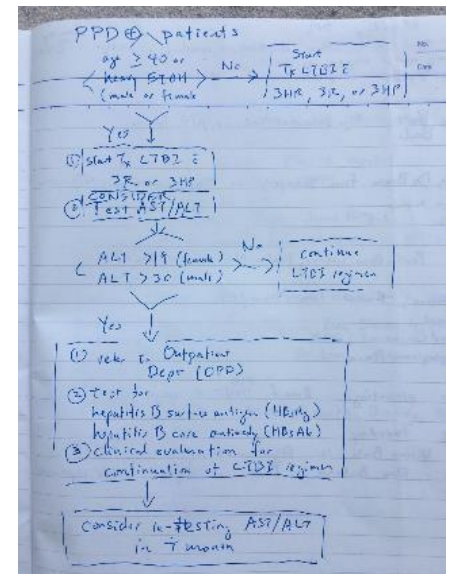 PPD ⊕ patients
age ≥ 40 or
heavy ETOH
(male or female
No
Start
Tx LTBI c̄
3HR, 3R, or 3HP
Yes
① start Tx LTBI c̄
3R or 3HP
CONSIDER
② Test AST/ALT
ALT >19 (female)
ALT >30 (male)
No
continue
LTBI regimen
Yes
① refer to Outpatient
Dept (OPD)
② test for
hepatitis B surface antigen (HBsAg)
hepatitis B core antibody (HBsAb)
③ clinical evaluation for
continuation of LTBI regimen
Consider re-testing AST/ALT
in 1 month
No.
Date